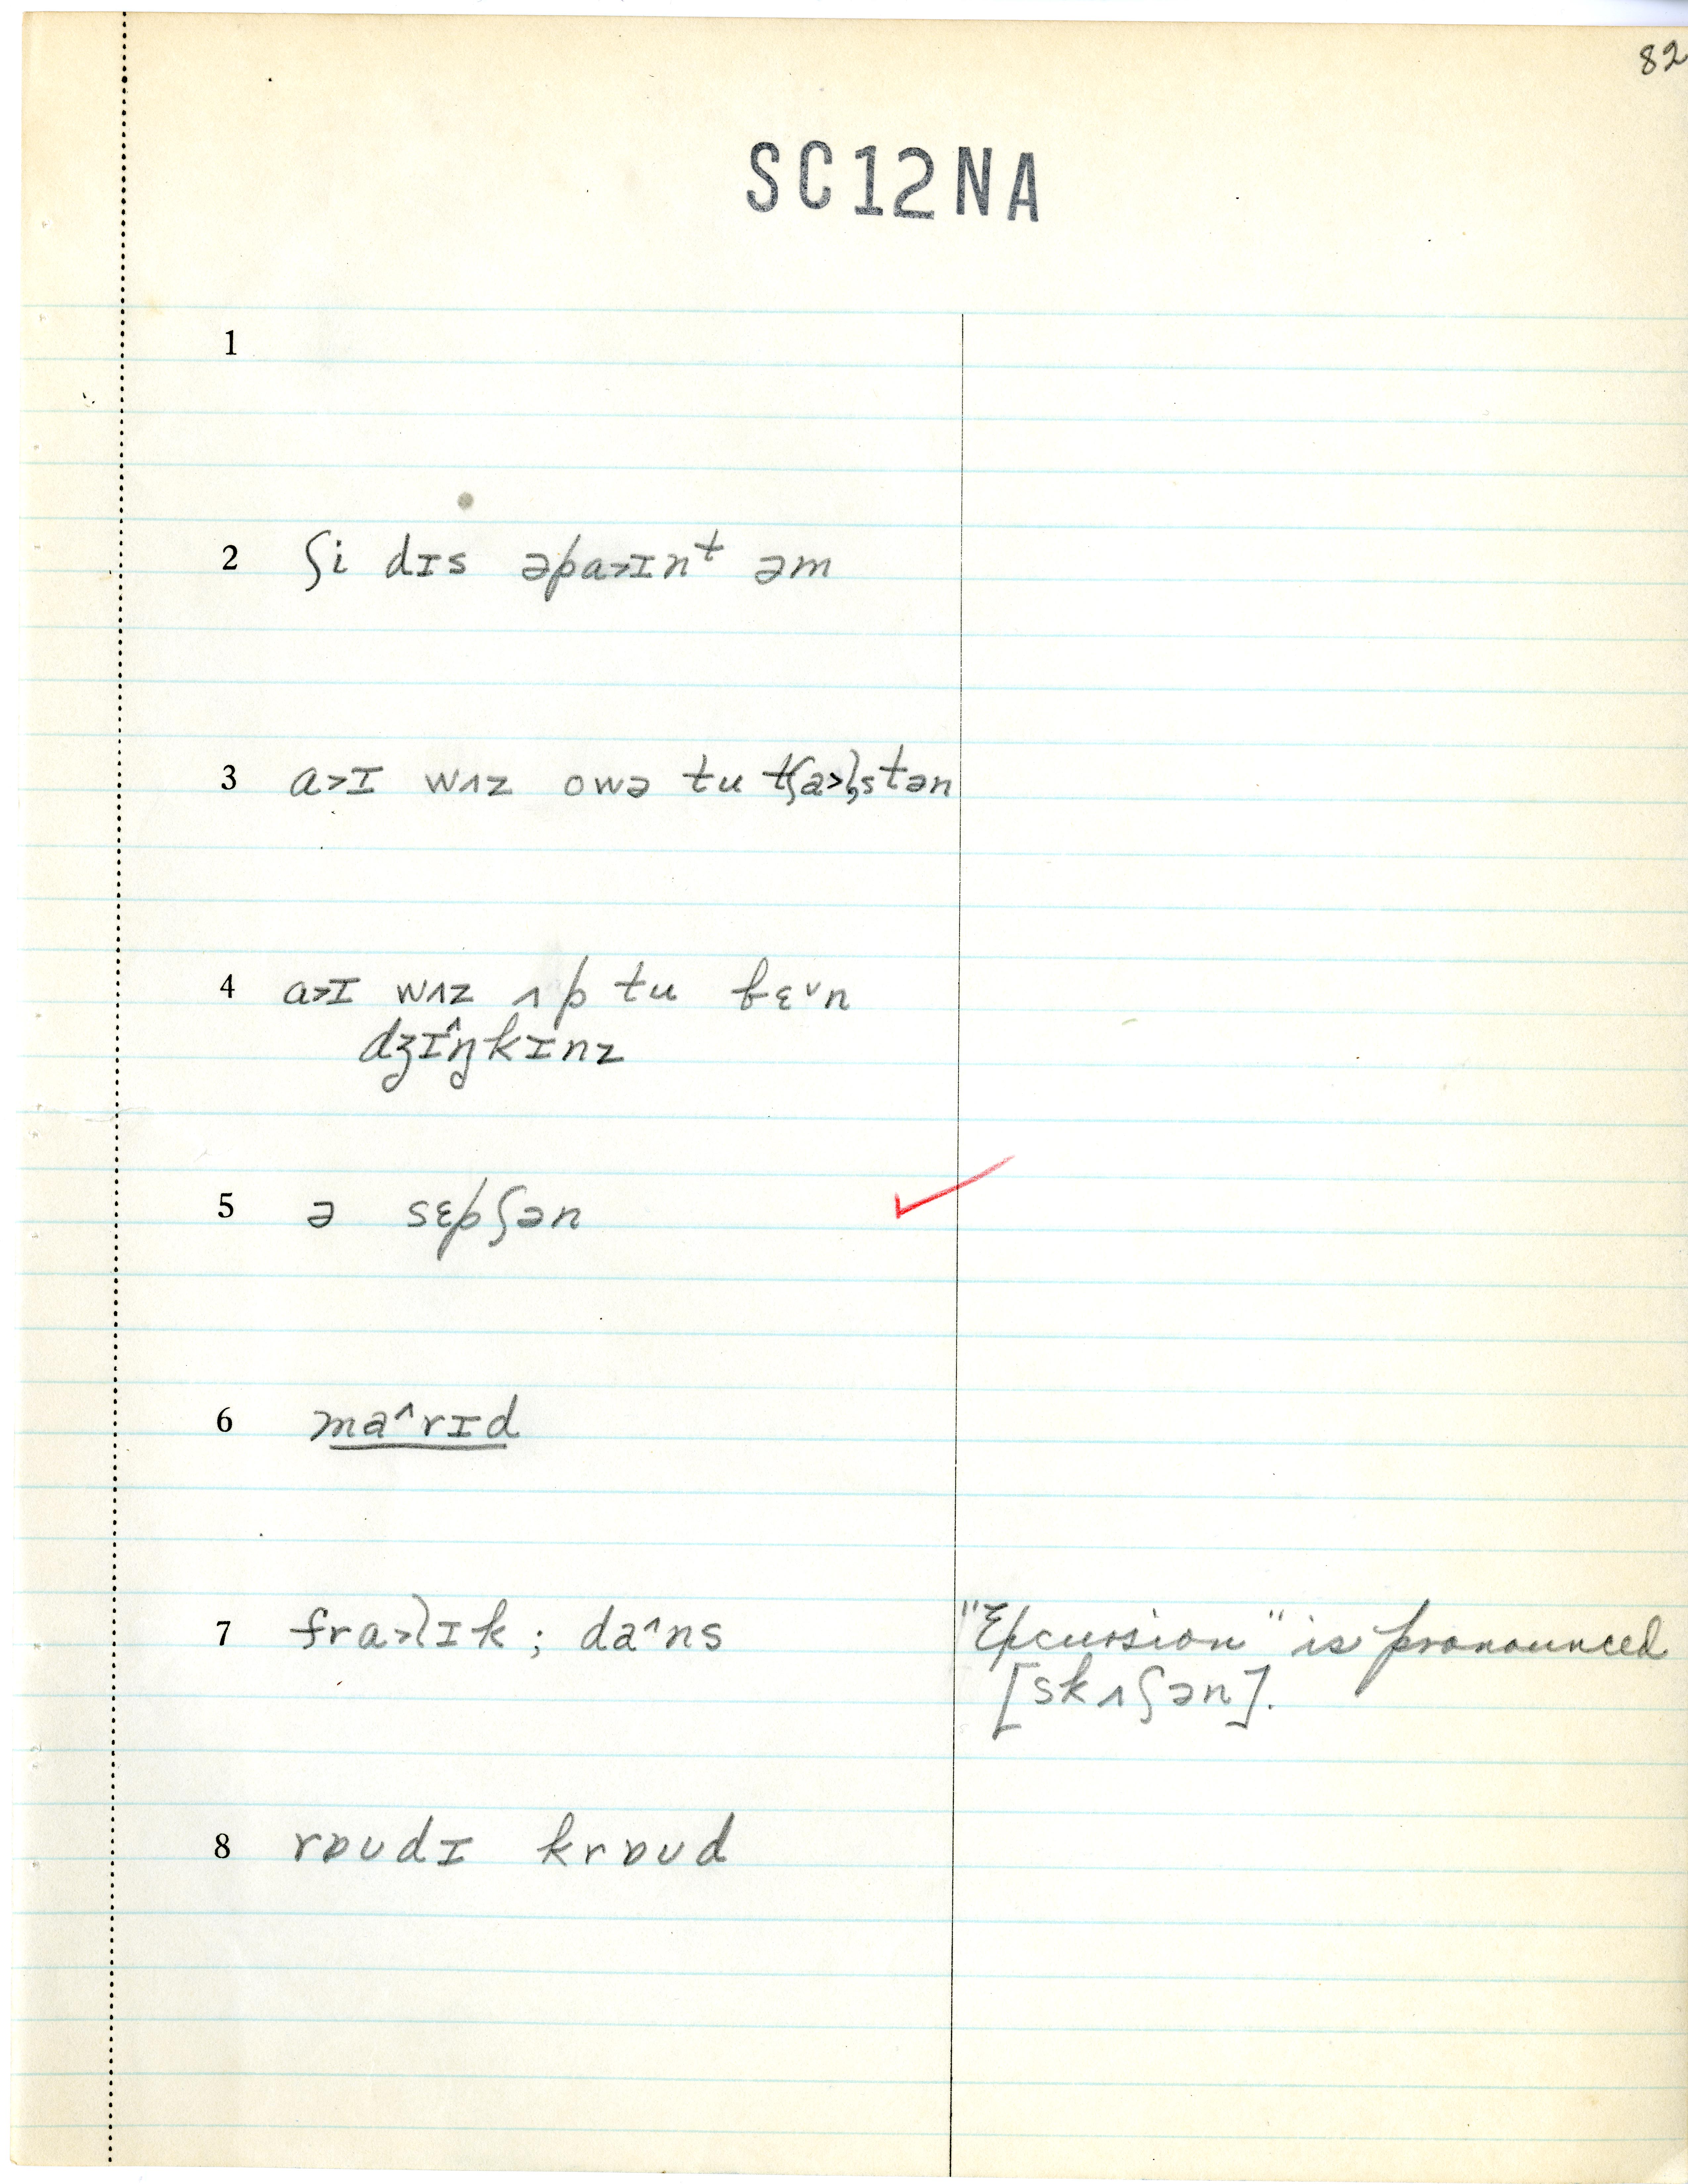 82
SC12NA
1
2 ʃi dɪs əpa>ɪnᵗ əm
3 a>ɪ wʌz owə tu tʃa>lstən
4 a>ɪ wʌz ʌp tu bɛ˅n
dʒɪ^ŋkɪnz
5 ə sɛpʃən ✓
6 ma^rɪd
7 fra>lɪk; da^ns
"Excursion" is pronounced
[skʌʃən].
8 rɒʊdɪ krɒʊd